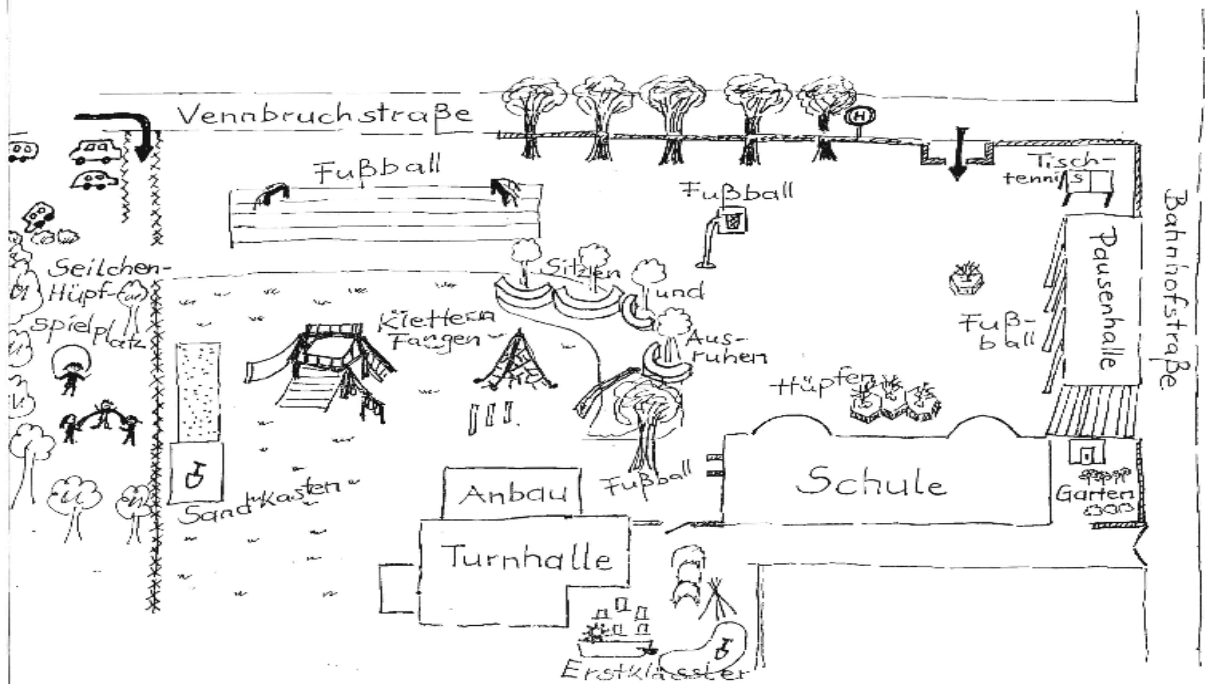 Vennbruchstraße
H
Fußball
Fußball
Tisch-
tennis
Bahnhofstraße
Pausenhalle
Seilchen-
Hüpf-
spielplatz
Sitzen
und
Aus-
ruhen
Klettern
Fangen
Fuß-
ball
Hüpfen
Sandkasten
Anbau
Fußball
Schule
Garten
Turnhalle
Erstklässler